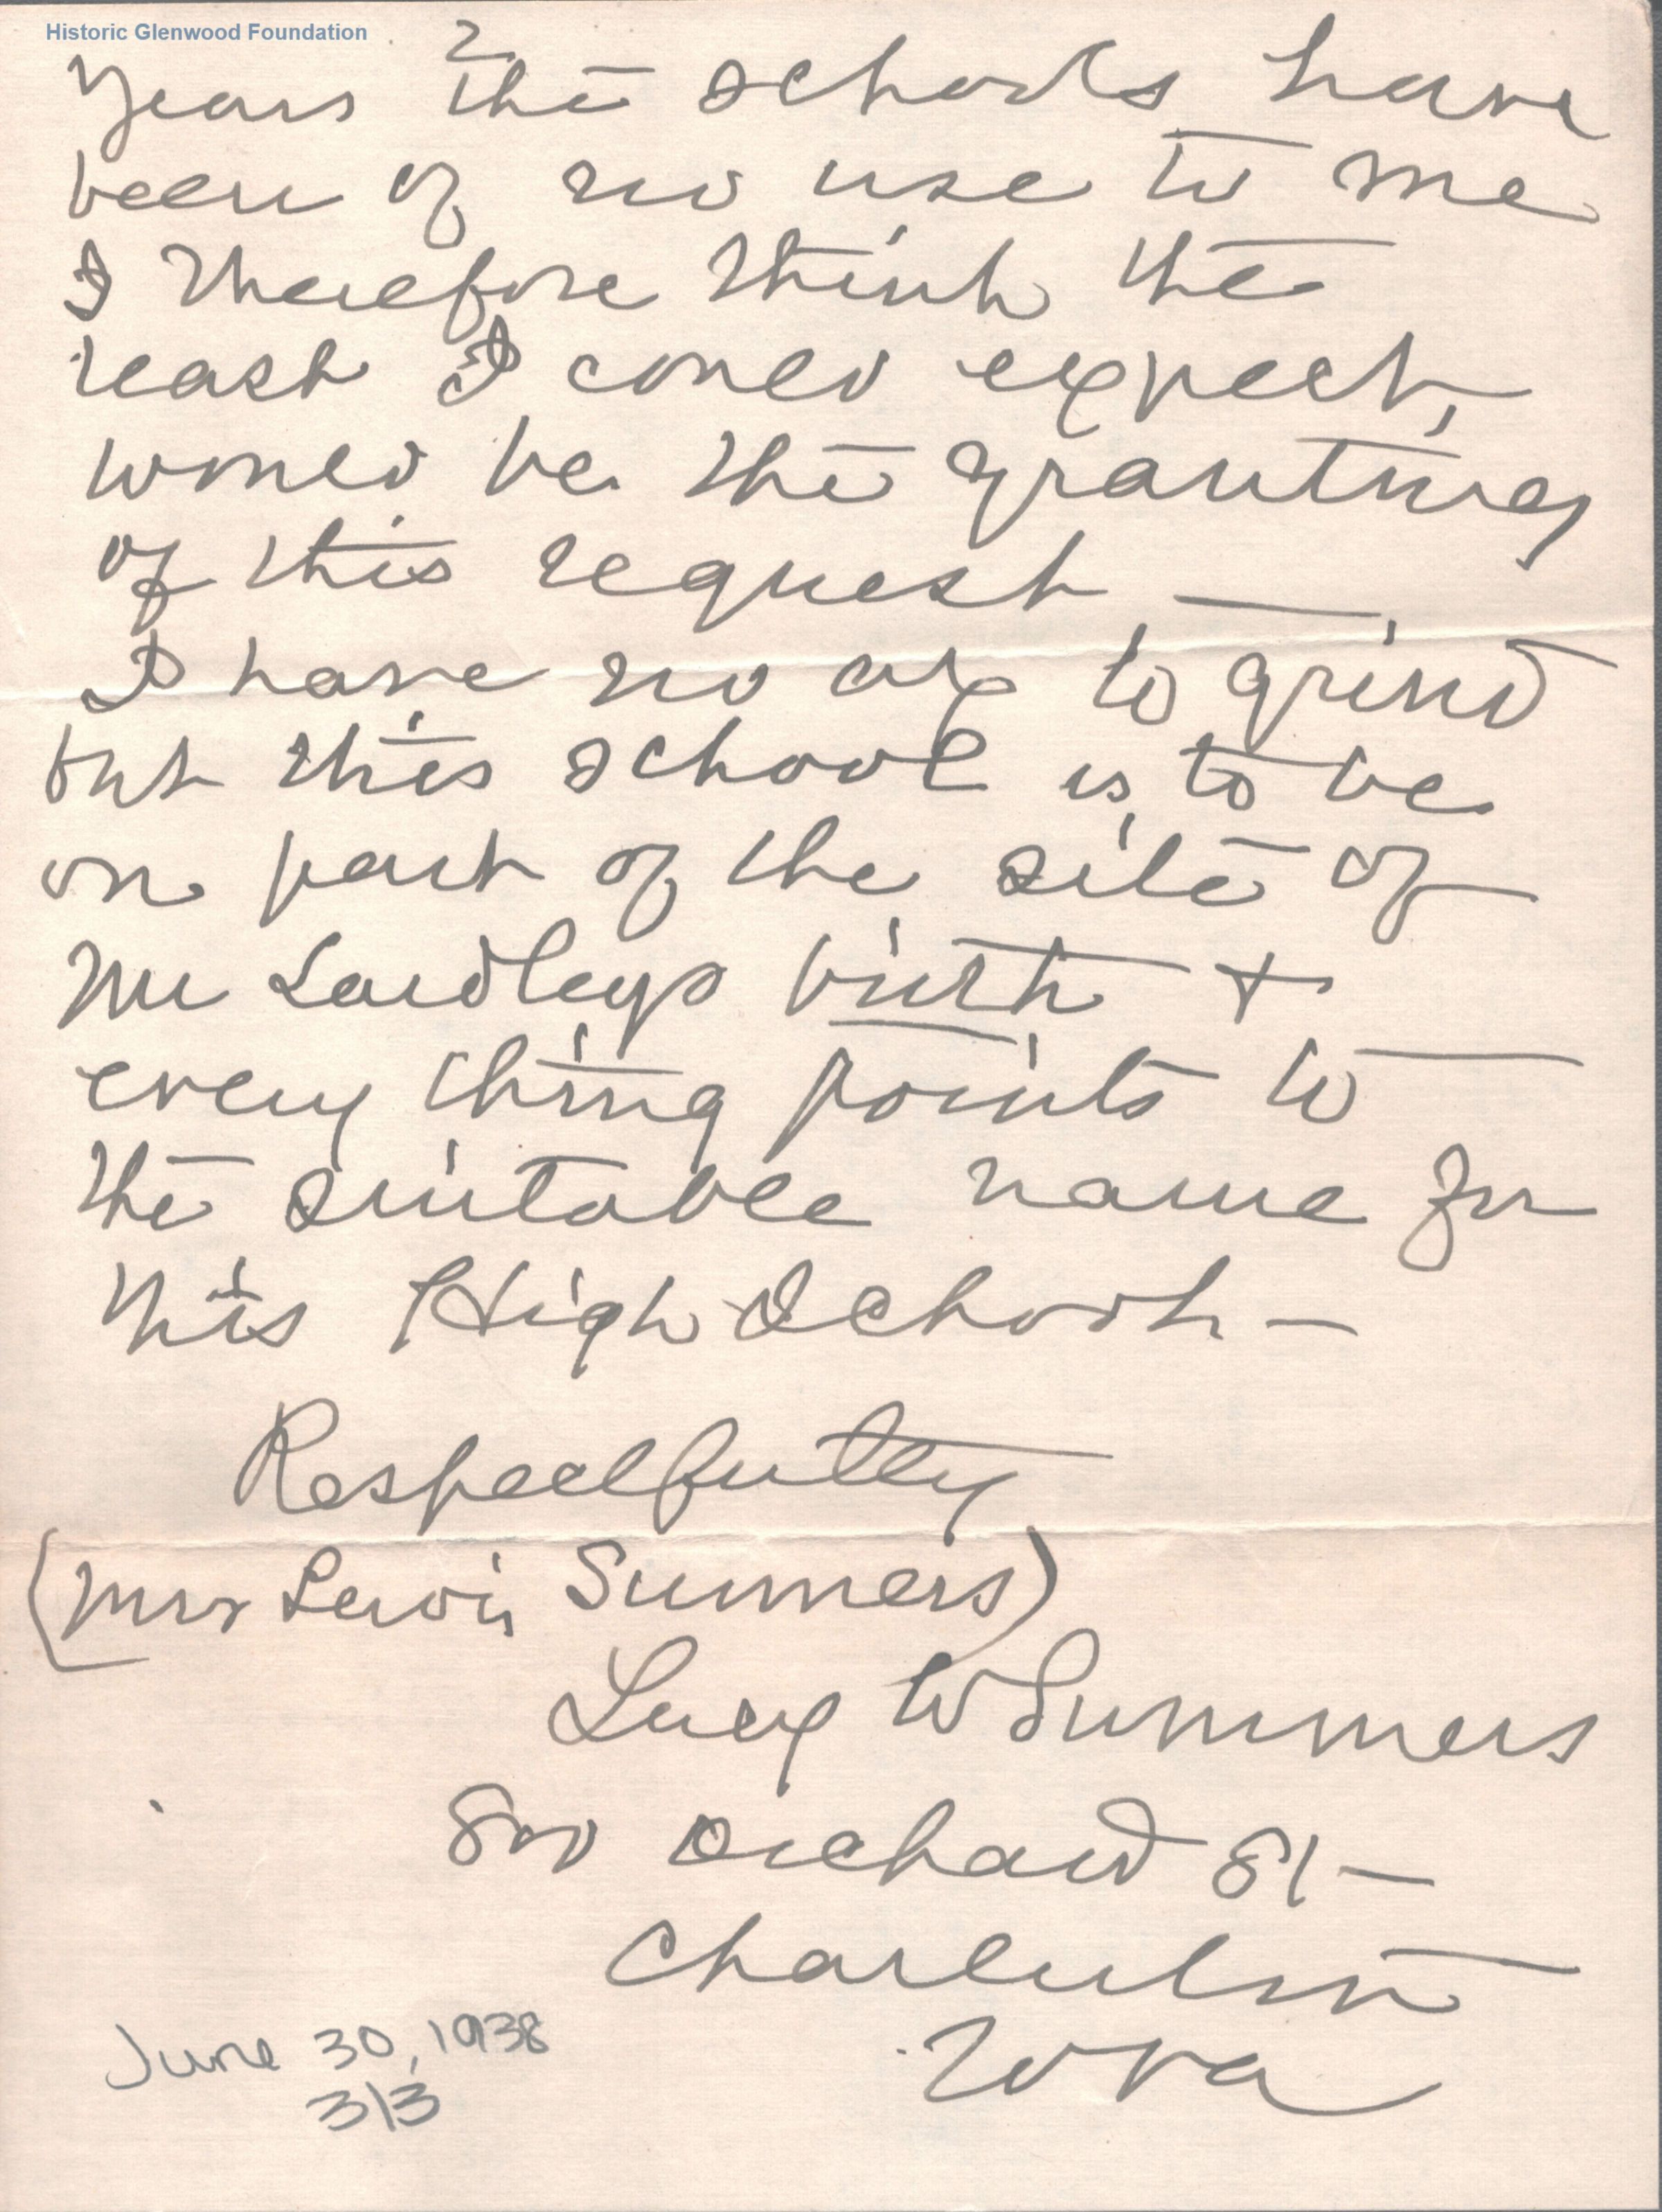 Historic Glenwood Foundation
2
years the schools have
been of no use to me
I therefore think the
least I could expect
would be the granting
of this request —
I have no ax to grind
but this school is to be
on part of the site of
Mr Laidleys birth +
every thing points to
the suitable name for
this High School —
Respectfully
(Mrs Lewis Summers)
Lucy W Summers
800 Orchard St —
Charleston
W Va
June 30, 1938
3/3